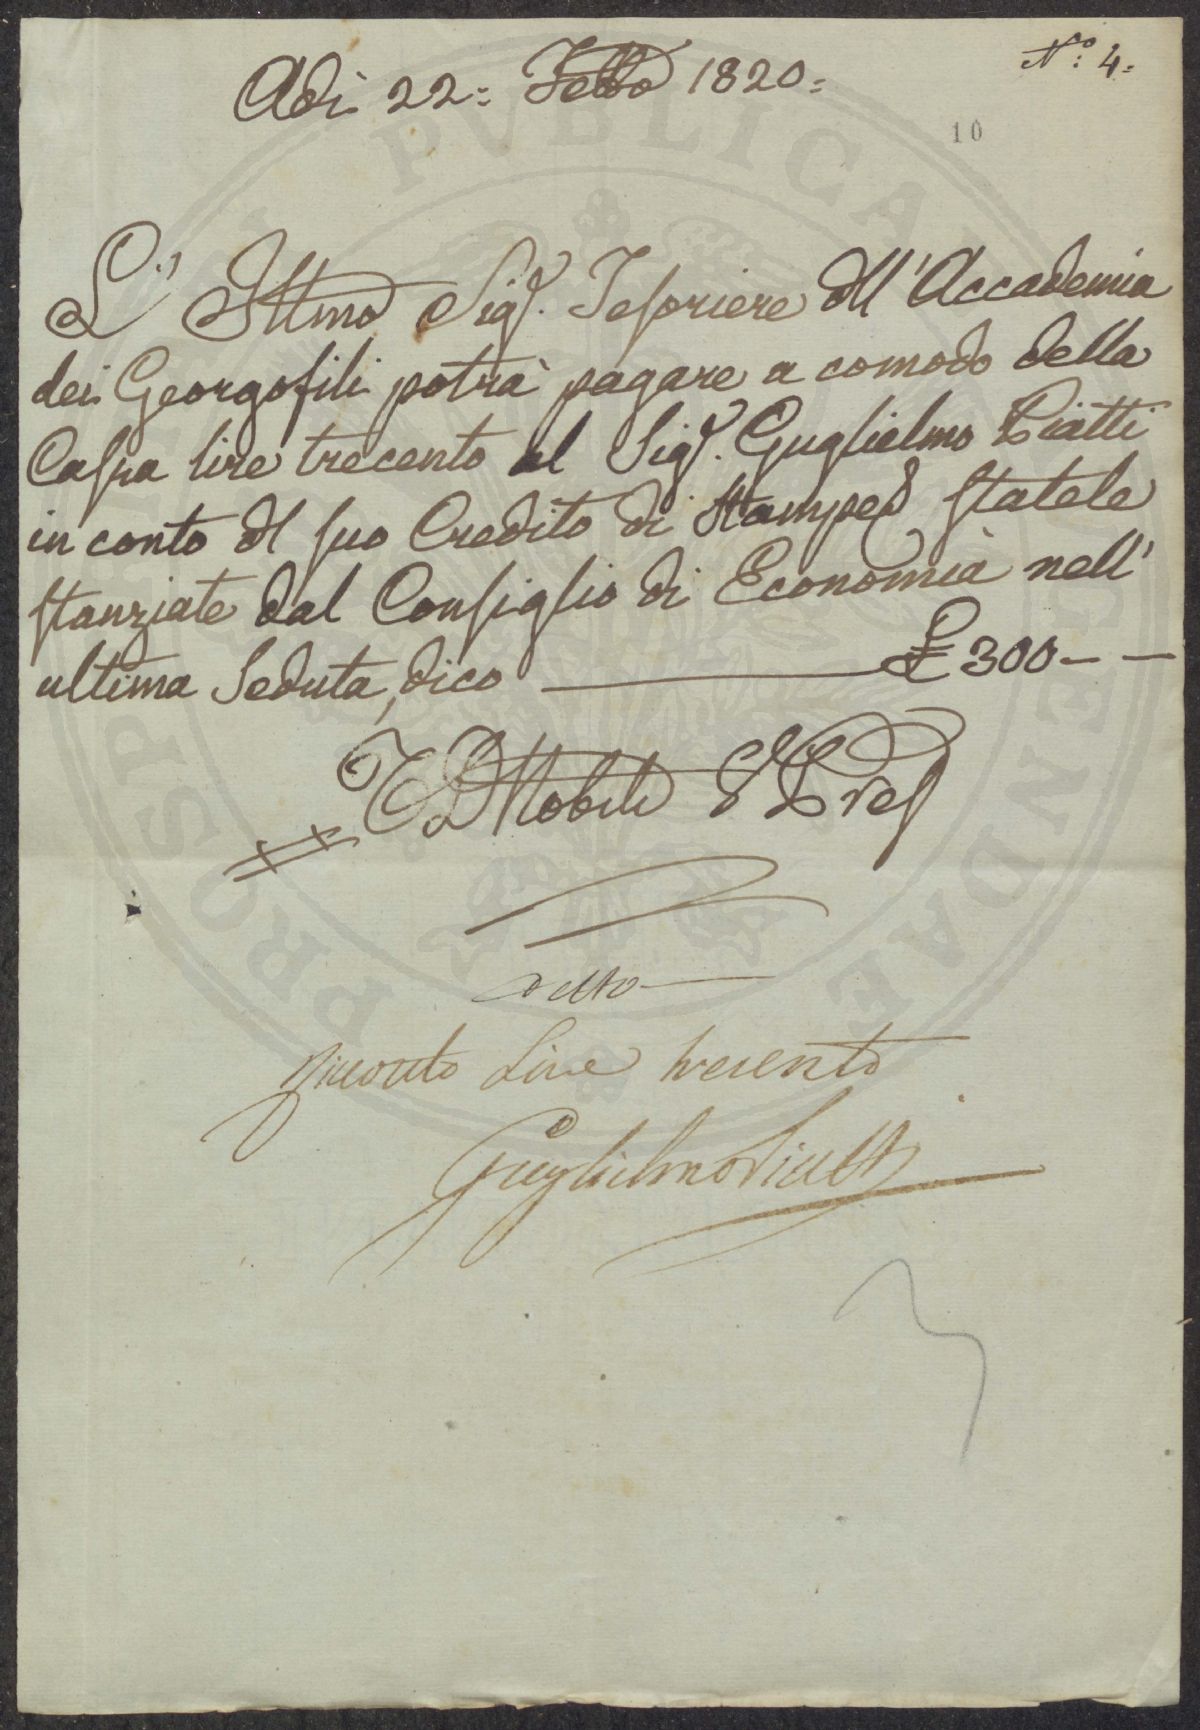 N.o: 4.
Adì 22: Febbo 1820:
10
L' Illmo Sigr. Tesoriere dll' Accademia
dei Georgofili potrà pagare a comodo della
Cassa lire trecento al Sigr. Guglielmo Piatti
in conto dl suo Credito di Stampe statele
stanziate dal Consiglio di Economia nell'
ultima Seduta, dico £ 300 - -
Nobili V Pres
detto
Ricevuto Lire trecento
Guglielmo Piatti
PROSPERITATI PVBLICAE AVGENDAE